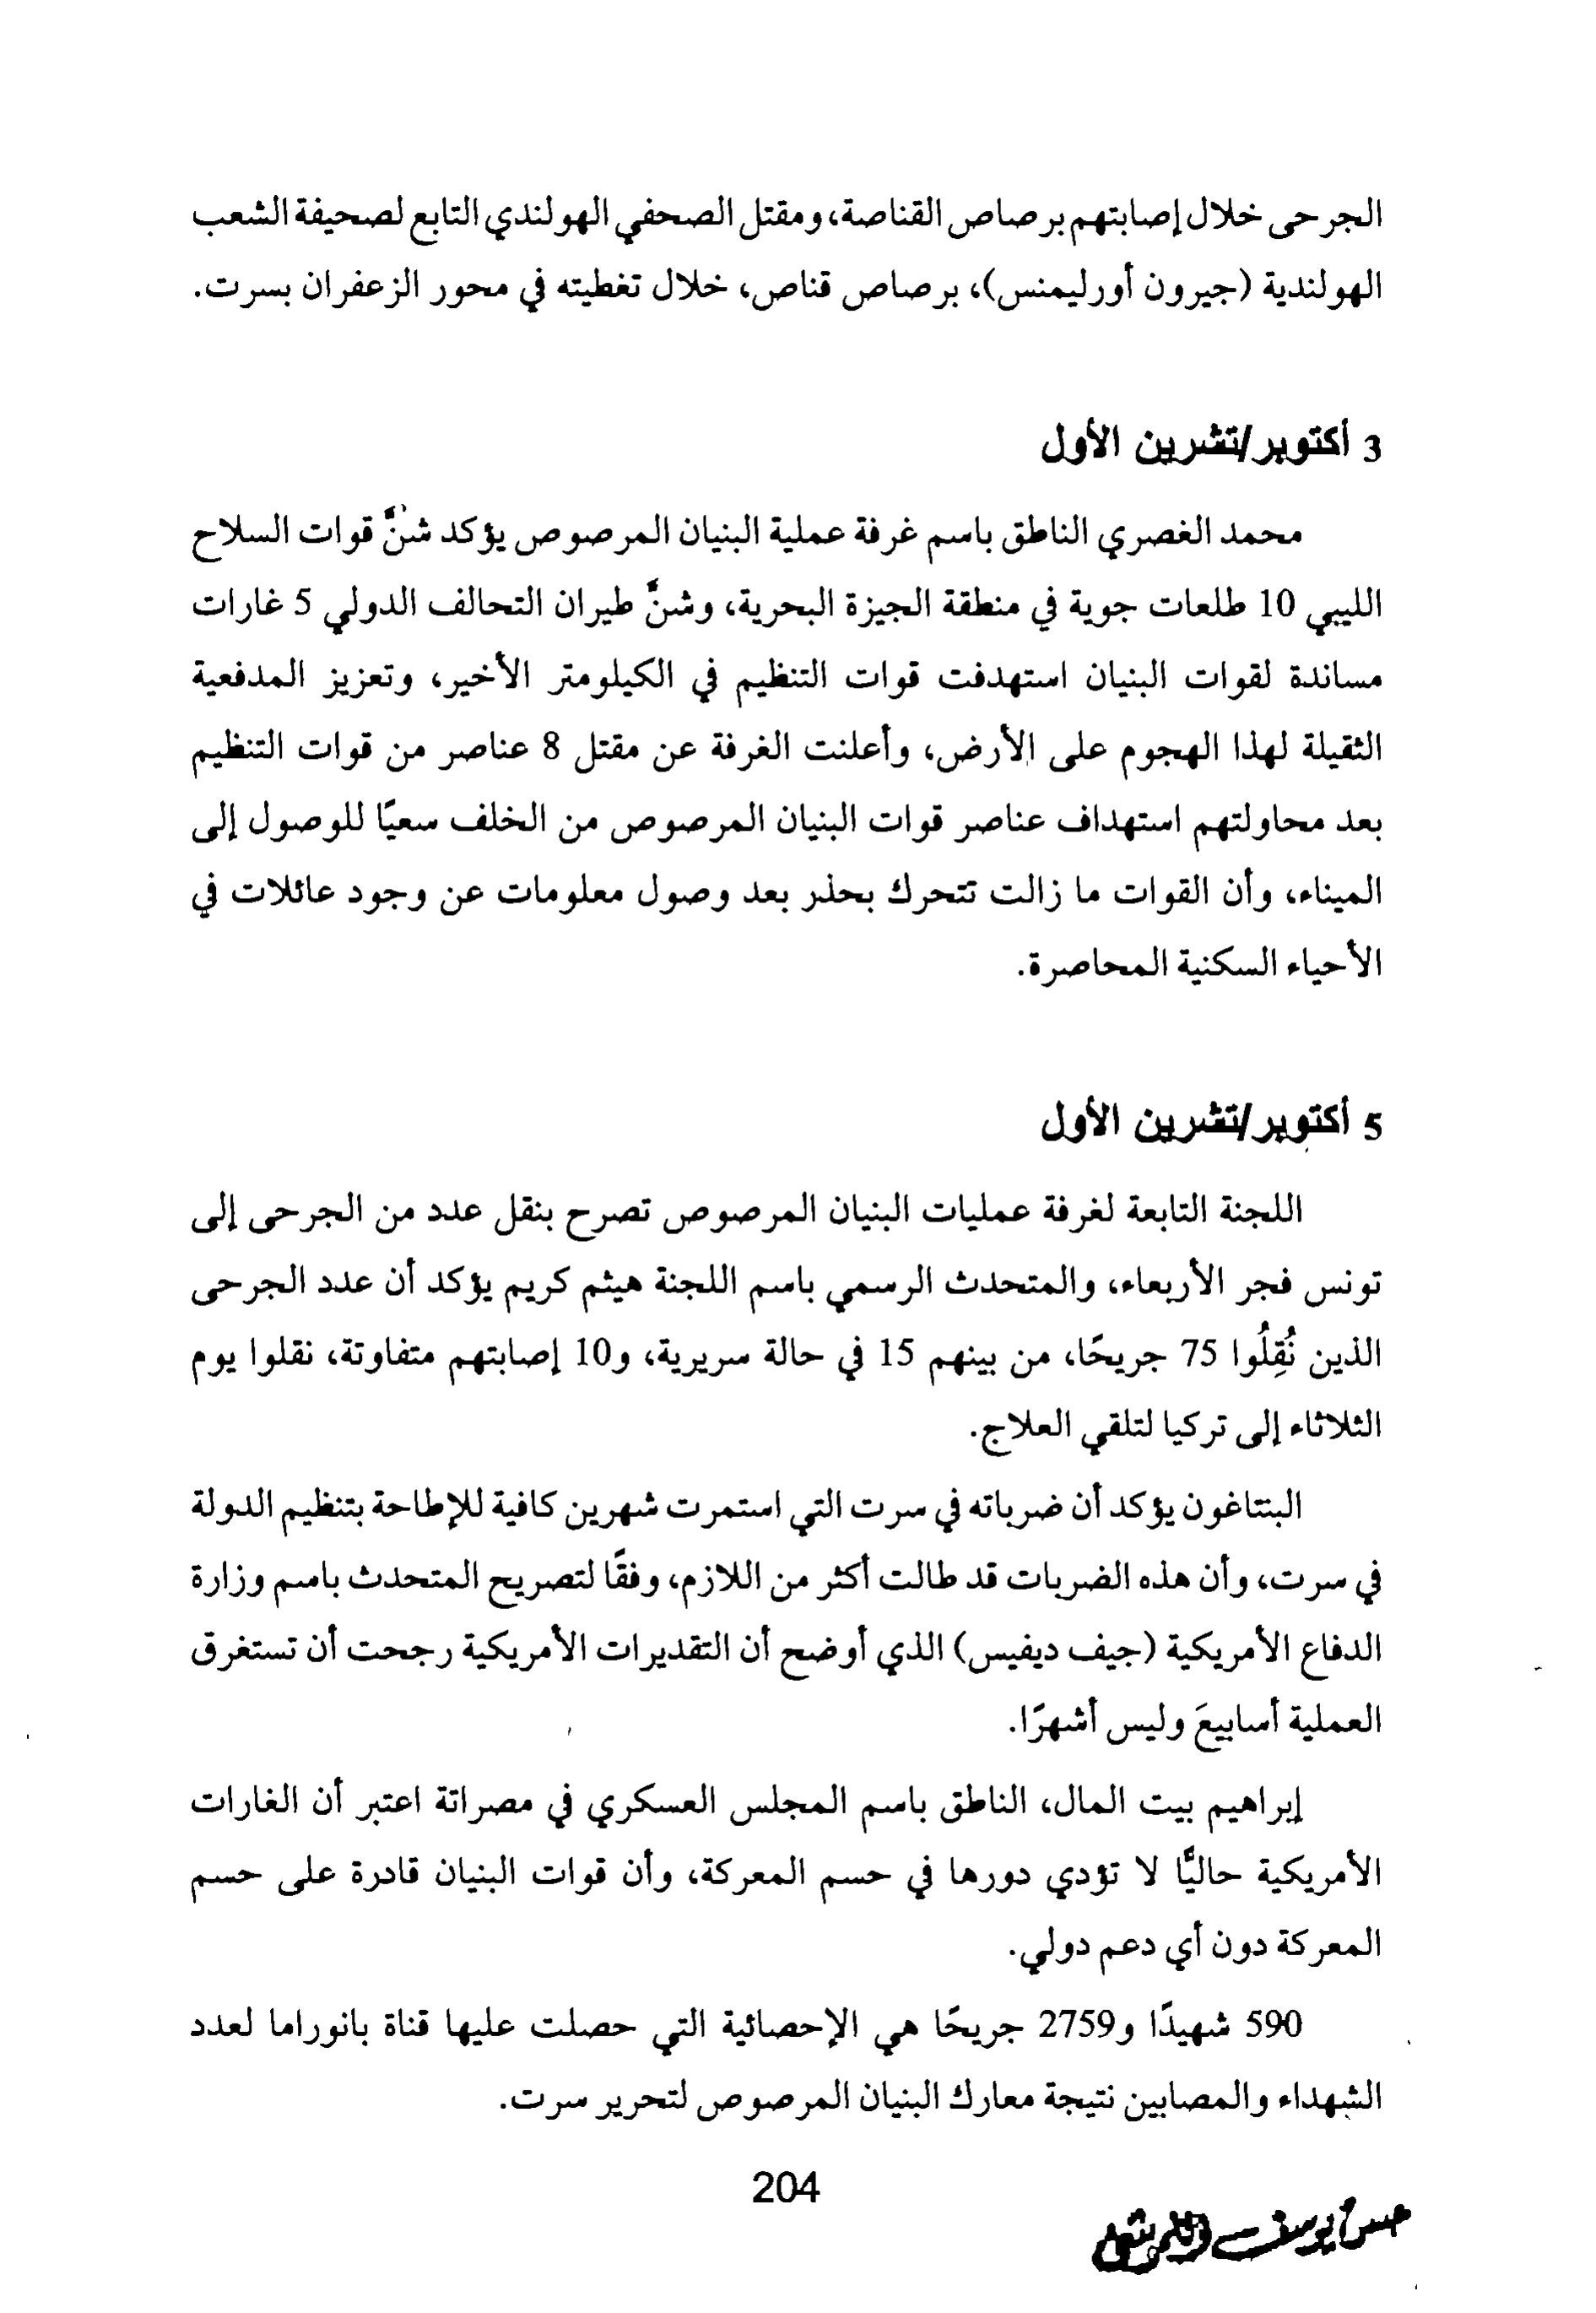 الجرحى خلال إصابتهم برصاص القناصة، ومقتل الصحفي الهولندي التابع لصحيفة الشعب
الهولندية (جيرون أورليمنس)، برصاص قناص، خلال تغطيته في محور الزعفران بسرت.
3 أكتوبر/تشرين الأول
محمد الغصري الناطق باسم غرفة عملية البنيان المرصوص يؤكد شنَّ قوات السلاح
الليبي 10 طلعات جوية في منطقة الجيزة البحرية، وشنَّ طيران التحالف الدولي 5 غارات
مساندة لقوات البنيان استهدفت قوات التنظيم في الكيلومتر الأخير، وتعزيز المدفعية
الثقيلة لهذا الهجوم على الأرض، وأعلنت الغرفة عن مقتل 8 عناصر من قوات التنظيم
بعد محاولتهم استهداف عناصر قوات البنيان المرصوص من الخلف سعيًا للوصول إلى
الميناء، وأن القوات ما زالت تتحرك بحذر بعد وصول معلومات عن وجود عائلات في
الأحياء السكنية المحاصرة.
5 أكتوبر/تشرين الأول
اللجنة التابعة لغرفة عمليات البنيان المرصوص تصرح بنقل عدد من الجرحى إلى
تونس فجر الأربعاء، والمتحدث الرسمي باسم اللجنة هيثم كريم يؤكد أن عدد الجرحى
الذين نُقِلُوا 75 جريحًا، من بينهم 15 في حالة سريرية، و10 إصابتهم متفاوتة، نقلوا يوم
الثلاثاء إلى تركيا لتلقي العلاج.
البنتاغون يؤكد أن ضرباته في سرت التي استمرت شهرين كافية للإطاحة بتنظيم الدولة
في سرت، وأن هذه الضربات قد طالت أكثر من اللازم، وفقًا لتصريح المتحدث باسم وزارة
الدفاع الأمريكية (جيف ديفيس) الذي أوضح أن التقديرات الأمريكية رجحت أن تستغرق
العملية أسابيعَ وليس أشهرًا.
إبراهيم بيت المال، الناطق باسم المجلس العسكري في مصراتة اعتبر أن الغارات
الأمريكية حاليًّا لا تؤدي دورها في حسم المعركة، وأن قوات البنيان قادرة على حسم
المعركة دون أي دعم دولي.
590 شهيدًا و2759 جريحًا هي الإحصائية التي حصلت عليها قناة بانوراما لعدد
الشهداء والمصابين نتيجة معارك البنيان المرصوص لتحرير سرت.
204
حسن يوسف